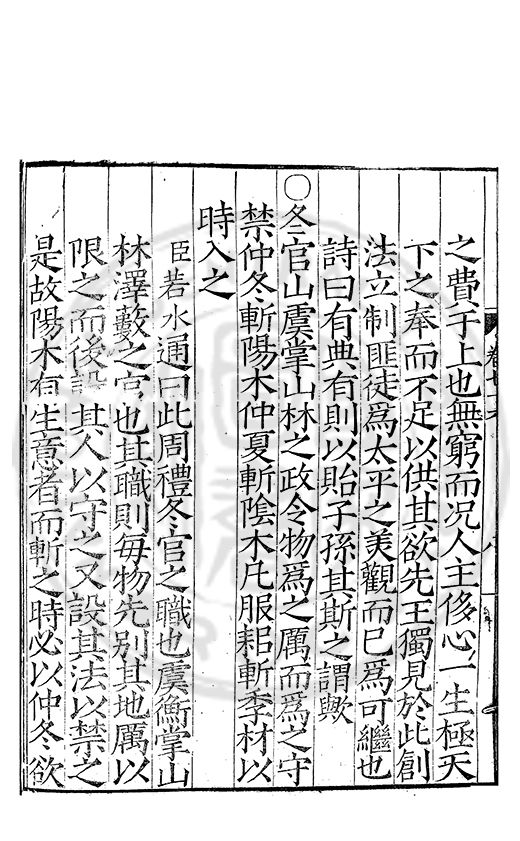 卷七十六
八
之費于上也無窮而况人主侈心一生極天
下之奉而不足以供其欲先王獨見於此創
法立制匪徒爲太平之美觀而已爲可繼也
詩曰有典有則以貽子孫其斯之謂歟
○冬官山虞掌山林之政令物爲之厲而爲之守
禁仲冬斬陽木仲夏斬陰木凡服耜斬季材以
時入之
臣若水通曰此周禮冬官之職也虞衡掌山
林澤藪之官也其職則每物先别其地厲以
限之而後設其人以守之又設其法以禁之
是故陽木有生意者而斬之時必以仲冬欲